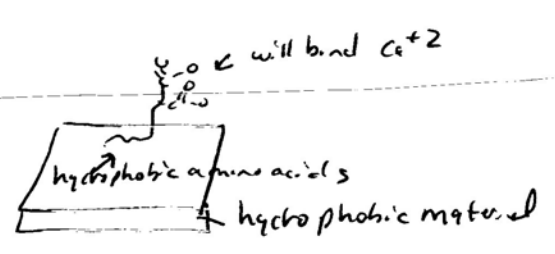 will bind Ca+2
O
O
C O
hydrophobic amino acids
hydrophobic material